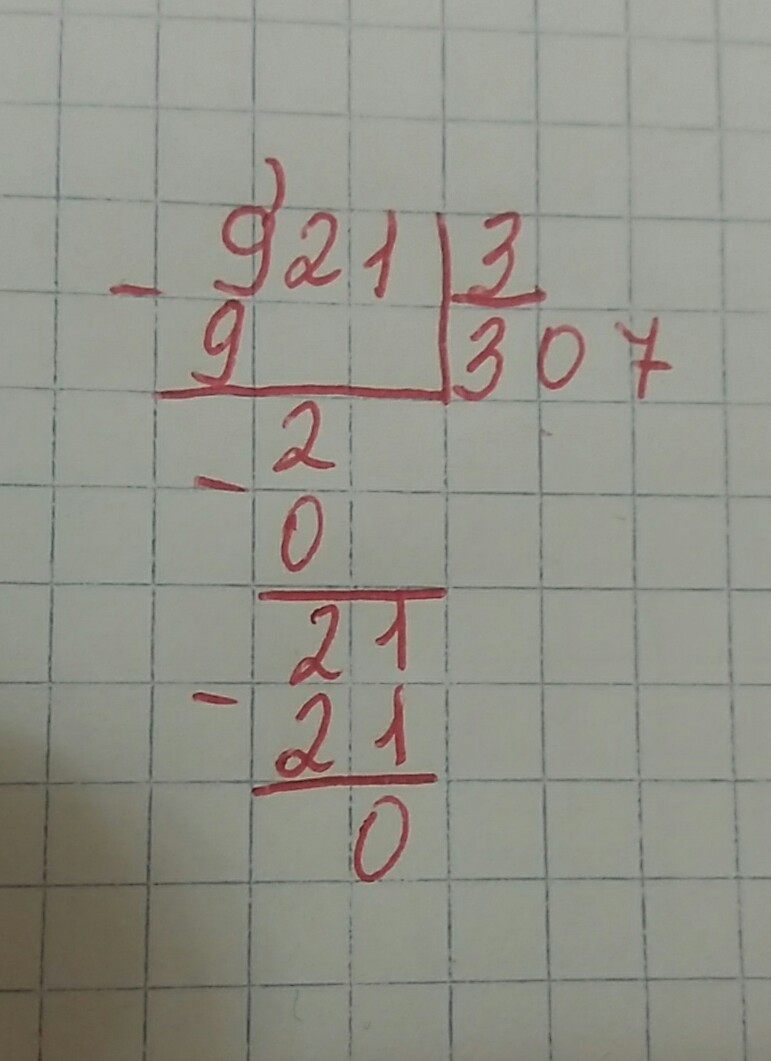 921 3
- 9 307
2
- 0
21
- 21
0